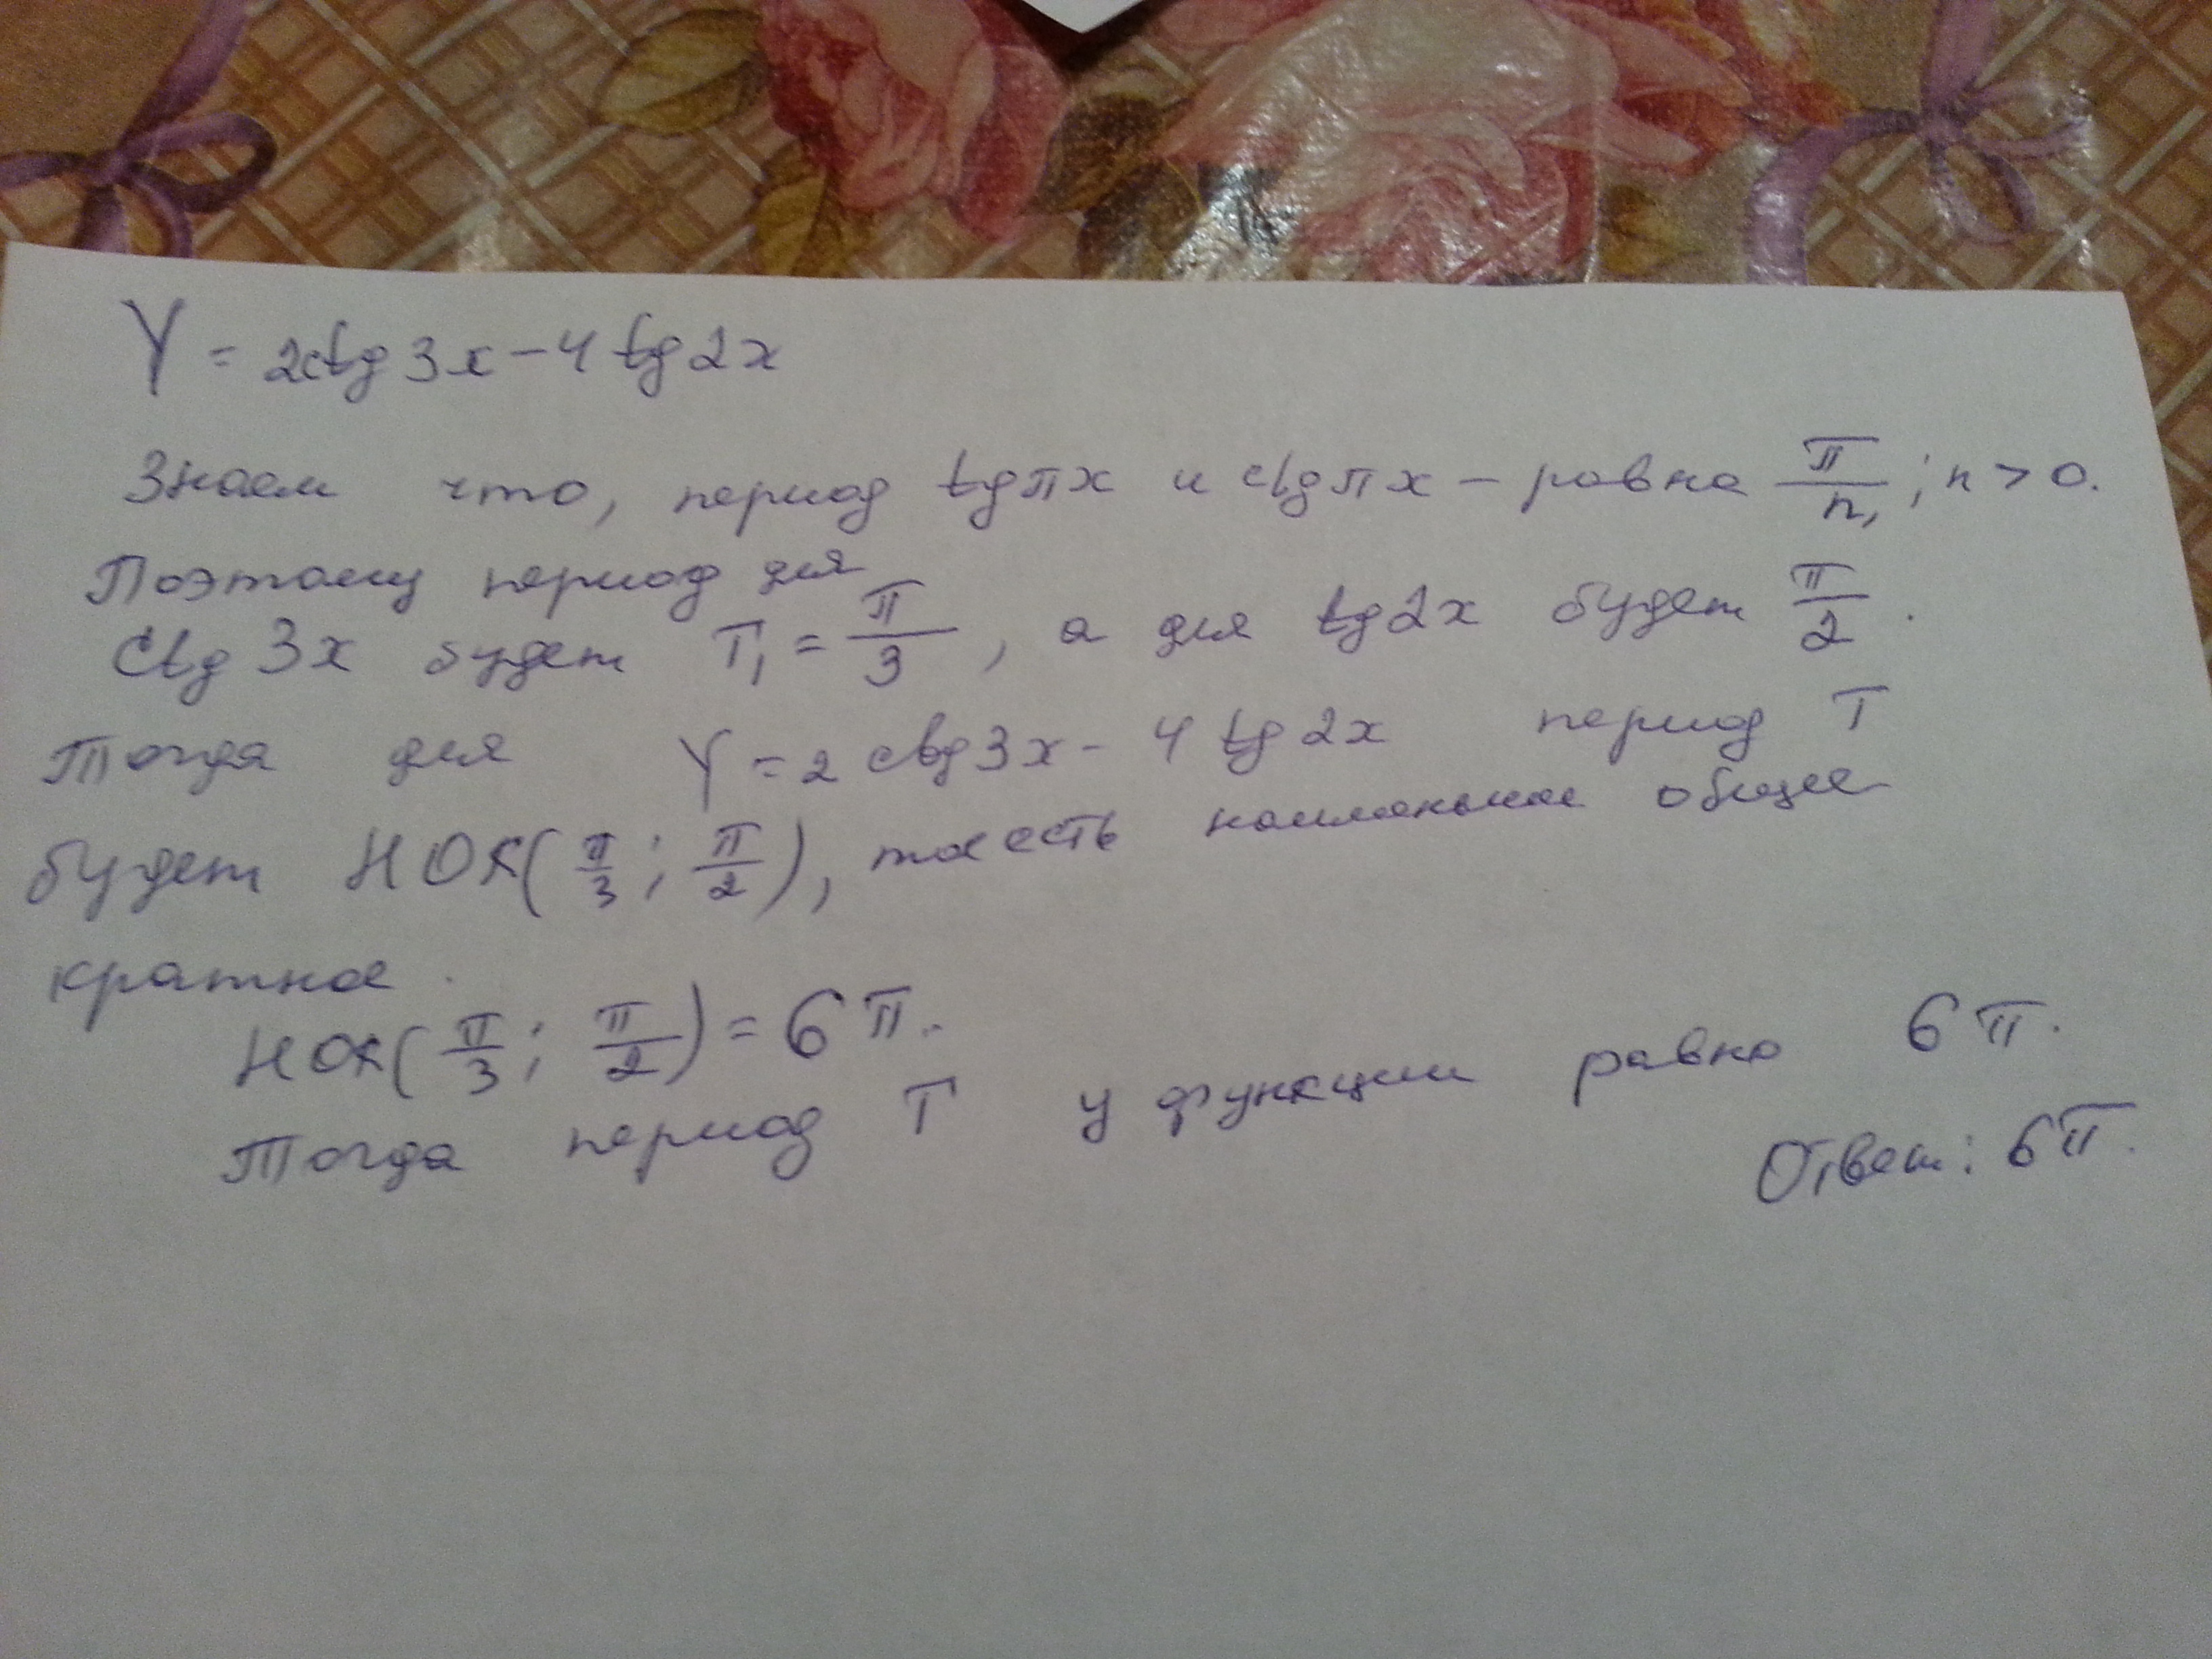 Y = 2ctg3x - 4tg2x
Знаем что, период tgnx и ctgnx - равна π/n, ; n > 0.
Поэтому период для
Ctg3x будет T₁ = π/3 , а для tg2x будет π/2 .
Тогда для Y = 2ctg3x - 4tg2x период T
будет НОК(π/3 ; π/2), то есть наименьшее общее
кратное.
НОК(π/3 ; π/2) = 6π.
Тогда период T у функции равно 6π.
Ответ: 6π.